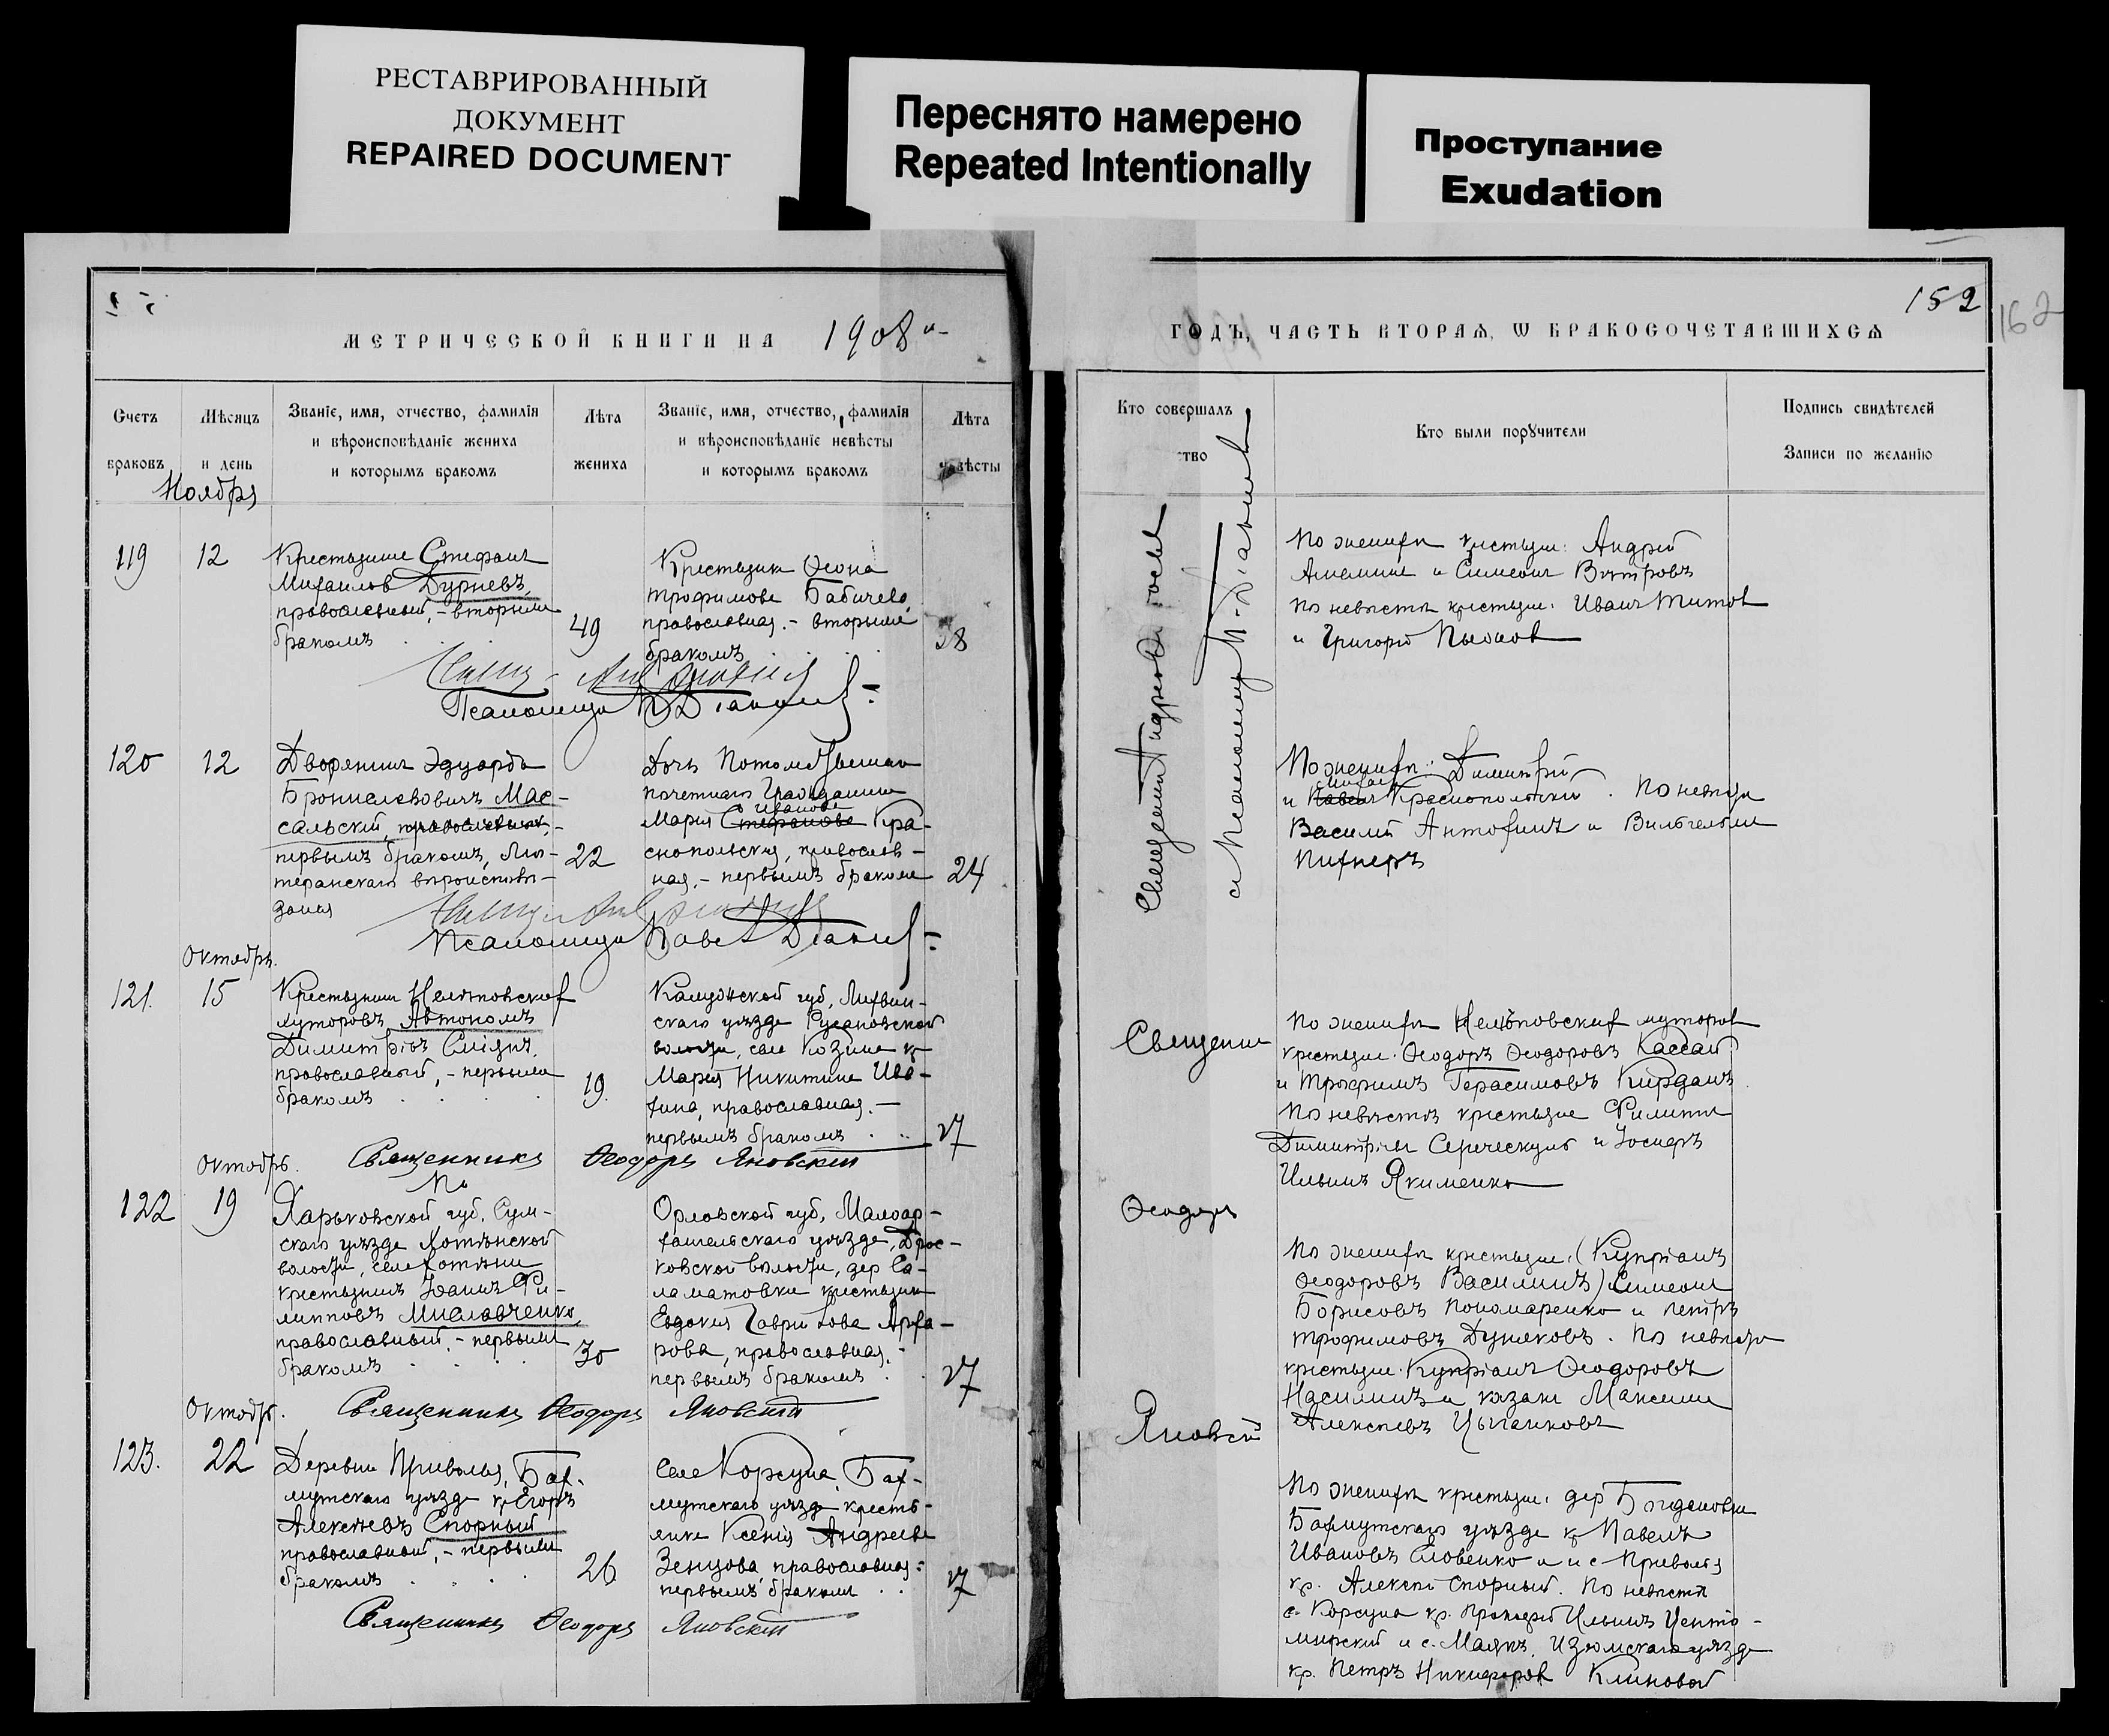 РЕСТАВРИРОВАННЫЙ
ДОКУМЕНТ
REPAIRED DOCUMENT
Переснято намерено
Repeated Intentionally
Проступание
Exudation
МЕТРИЧЕСКОЙ КНИГИ НА 1908 й
Счетъ
браковъ
Мѣсяцъ
и день
Званіе, имя, отчество, фамилія
и вѣроисповѣданіе жениха
и которымъ бракомъ
Лѣта
жениха
Званіе, имя, отчество, фамилія
и вѣроисповѣданіе невѣсты
и которымъ бракомъ
Лѣта
невѣсты
Ноября
119
12
Крестьянинъ Стефанъ
Михаиловъ Дурневъ,
православный, - вторымъ
бракомъ
49
Крестьянка Ѳеона
Трофимова Бабичева,
православная. - вторымъ
бракомъ
38
120
12
Дворянинъ Эдуардъ
Брониславовичъ Мас-
сальскій, православный, -
первымъ бракомъ, Лю-
теранскаго вѣроисповѣ-
данія
22
Дочь Потомственнаго
почетнаго Гражданина
Иванова
Марія Стефанова Кра-
снопольская, православ-
ная. - первымъ бракомъ
24
Псаломщикъ Павелъ
Октября.
121.
15
Крестьянинъ
хуторовъ Автономъ
Димитріевъ
православный, - первымъ
бракомъ
19.
Калужской губ, Лихвин-
скаго уѣзда Русановской
волости, села Козина кр
Марія Никитина Ива-
хина, православная. -
первымъ бракомъ
17
Священникъ Ѳеодоръ Яновскій
Октября.
122
19
Харьковской губ, Сум-
скаго уѣзда Хотѣнской
волости, села Хотѣни
крестьянинъ Іоаннъ Фи-
липповъ Миславченко,
православный, - первымъ
бракомъ
30
Орловской губ, Малоар-
хангельскаго уѣзда, Дрос-
ковской волости, дер Са-
ламатовки крестьянка
Евдокія Гаврилова Арха-
рова, православная. -
первымъ бракомъ
17
Священникъ Ѳеодоръ Яновскій
Октябр.
123.
22
Деревни Приволья, Бах-
мутскаго уѣзда кр Егоръ
Алексѣевъ Спорный
православный, - первымъ
бракомъ
26
Села Корсуна, Бах-
мутскаго уѣзда кресть-
янка Ксенія Андреева
Зенцова, православная:
первымъ бракомъ
17
Священникъ Ѳеодоръ Яновскій
152
162
ГОДЪ, ЧАСТЬ ВТОРАЯ, Ѡ БРАКОСОЧЕТАВШИХСЯ
Кто совершалъ
тво
Кто были поручители
Подпись свидѣтелей
Записи по желанію
По женихѣ крестьяне: Андрей
и Симеонъ Вѣтровъ
по невѣстѣ крестьяне: Иванъ Титовъ
и Григорій
По женихѣ: Димитрій
и Павелъ Краснопольскій. По невѣстѣ
Василій Антохинъ и Вильгельмъ
Питнеръ
Священникъ
Ѳеодоръ
Яновскій
По женихѣ хуторовъ
крестьяне. Ѳеодоръ Ѳеодоровъ Кассай
и Трофимъ Герасимовъ Кирданъ
По невѣстѣ крестьяне Филиппъ
Димитріевъ и Іосифъ
Ильинъ Якименко
По женихѣ крестьяне: (Купріанъ
Ѳеодоровъ Василинъ) Симеонъ
Борисовъ Пономаренко и Петръ
Трофимовъ Дуняковъ. По невѣстѣ
крестьяне. Купріанъ Ѳеодоровъ
Насилинъ и казакъ Максимъ
Алексѣевъ Цыганковъ
По женихѣ крестьяне: дер Богдановки
Бахмутскаго уѣзда кр Павелъ
Ивановъ Словенко и с Приволья
кр. Алексѣй Спорный. По невѣстѣ
с. Корсуна кр. Прокофій Ильинъ Центо-
мирскій и с. Маякъ, Изюмскаго уѣзда
кр. Петръ Никифоровъ Климовой